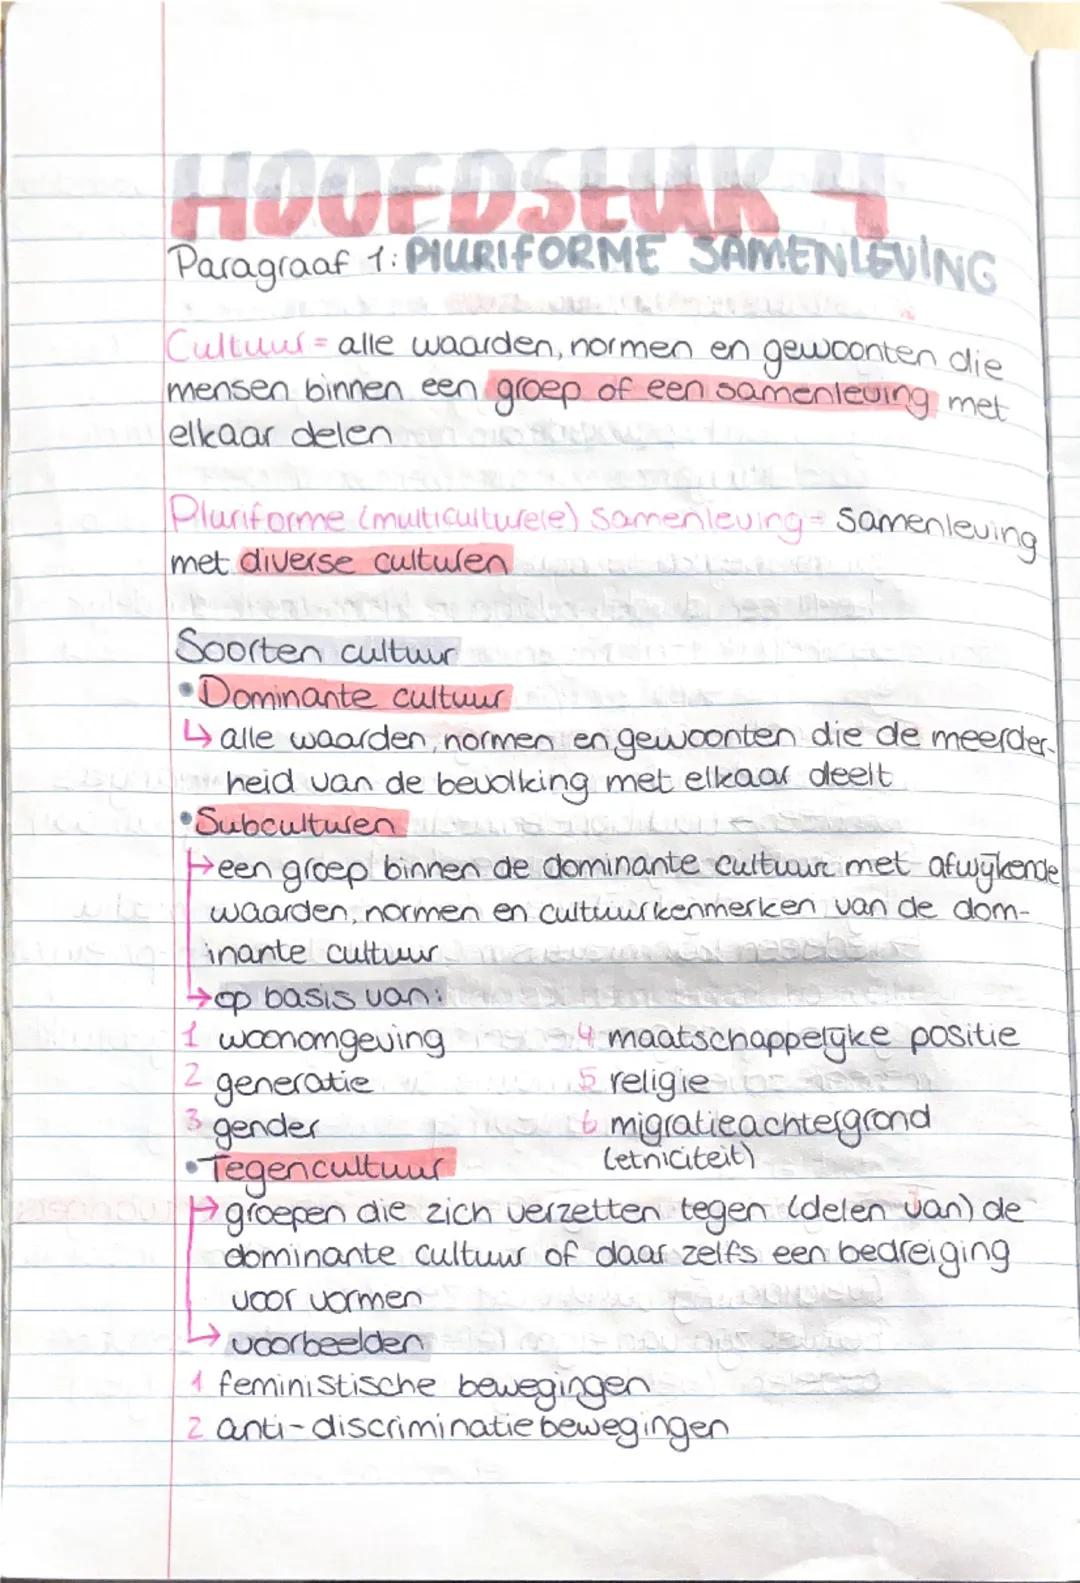 HOOFDSTUK 4
Paragraaf 1: PLURIFORME SAMENLEVING
Cultuur = alle waarden, normen en gewoonten die
mensen binnen een groep of een samenleving met
elkaar delen
Pluriforme (multiculturele) samenleving = samenleving
met diverse culturen
Soorten cultuur
• Dominante cultuur
↳ alle waarden, normen en gewoonten die de meerder-
heid van de bevolking met elkaar deelt
• Subculturen
→ een groep binnen de dominante cultuur met afwijkende
waarden, normen en cultuurkenmerken van de dom-
inante cultuur
→ op basis van:
1 woonomgeving 4 maatschappelijke positie
2 generatie 5 religie
3 gender 6 migratieachtergrond
(etniciteit)
• Tegencultuur
→ groepen die zich verzetten tegen (delen van) de
dominante cultuur of daar zelfs een bedreiging
voor vormen
→ voorbeelden
1 feministische bewegingen
2 anti-discriminatiebewegingen